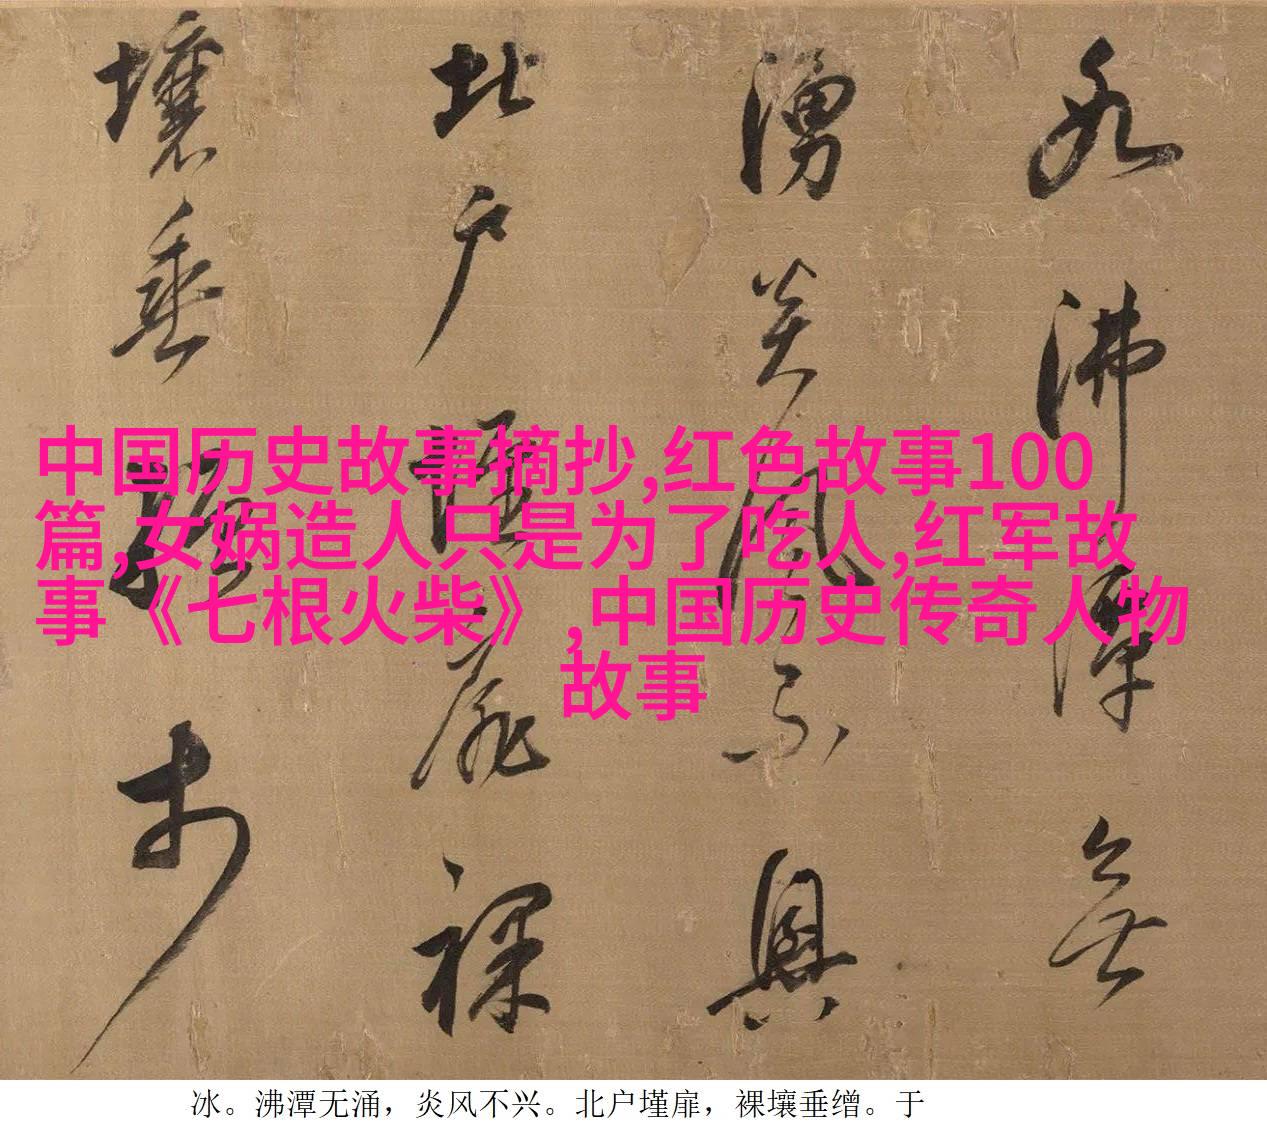 冰沸潭無
湧炎風不興
北户墐扉裸
壤垂繒於
中国历史故事摘抄,红色故事100
篇,女娲造人只是为了吃人,红军故
事《七根火柴》,中国历史传奇人物
故事
冰。沸潭无涌，炎风不兴。北户墐扉，裸壤垂缯。于